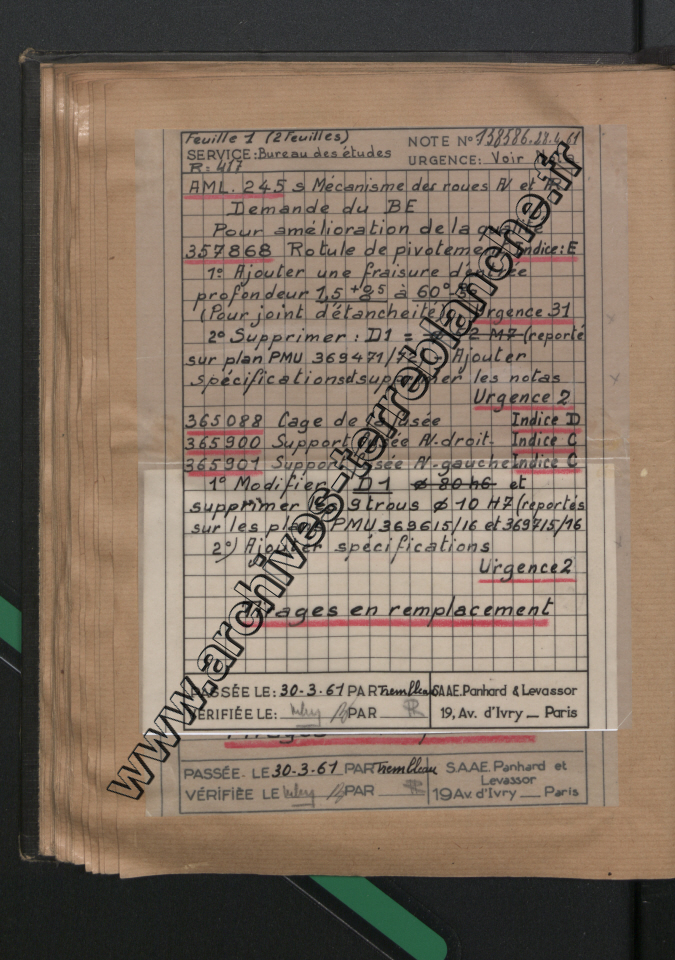 Feuille 1 (2 Feuilles) NOTE N° 138586.28.4.61
SERVICE: Bureau des études URGENCE: Voir
R: 417
AML. 245 s Mécanisme des roues AV et AR
Demande du BE
Pour amélioration de la
357868 Rotule de pivotement Indice: E
1° Ajouter une fraisure d'entrée
profondeur 1,5 à 60°
(Pour joint d'étancheité) Urgence 31
2° Supprimer: D1 = M7 (reporté
sur plan PMU 369471/ Ajouter
spécifications et supprimer les notas
Urgence 2
365088 Cage de fusée Indice D
365900 Support fusée AV-droit- Indice C
365901 Support fusée AV-gauche Indice C
1° Modifier D1 ø 80 h6 et
supprimer les 9 trous ø 10 H7 (reportés
sur les plans PMU 369615/16 et 369715/16
2°) Ajouter spécifications
Urgence 2
Tirages en remplacement
PASSÉE LE: 30-3-61 PAR Trembleau S.A.A.E. Panhard & Levassor
VÉRIFIÉE LE: PAR 19, Av. d'Ivry _ Paris
Tirages
PASSÉE LE 30-3-61 PAR Trembleau S.A.A.E. Panhard et
Levassor
VÉRIFIÉE LE PAR 19 Av. d'Ivry _ Paris
www.archives-terreblanche.fr